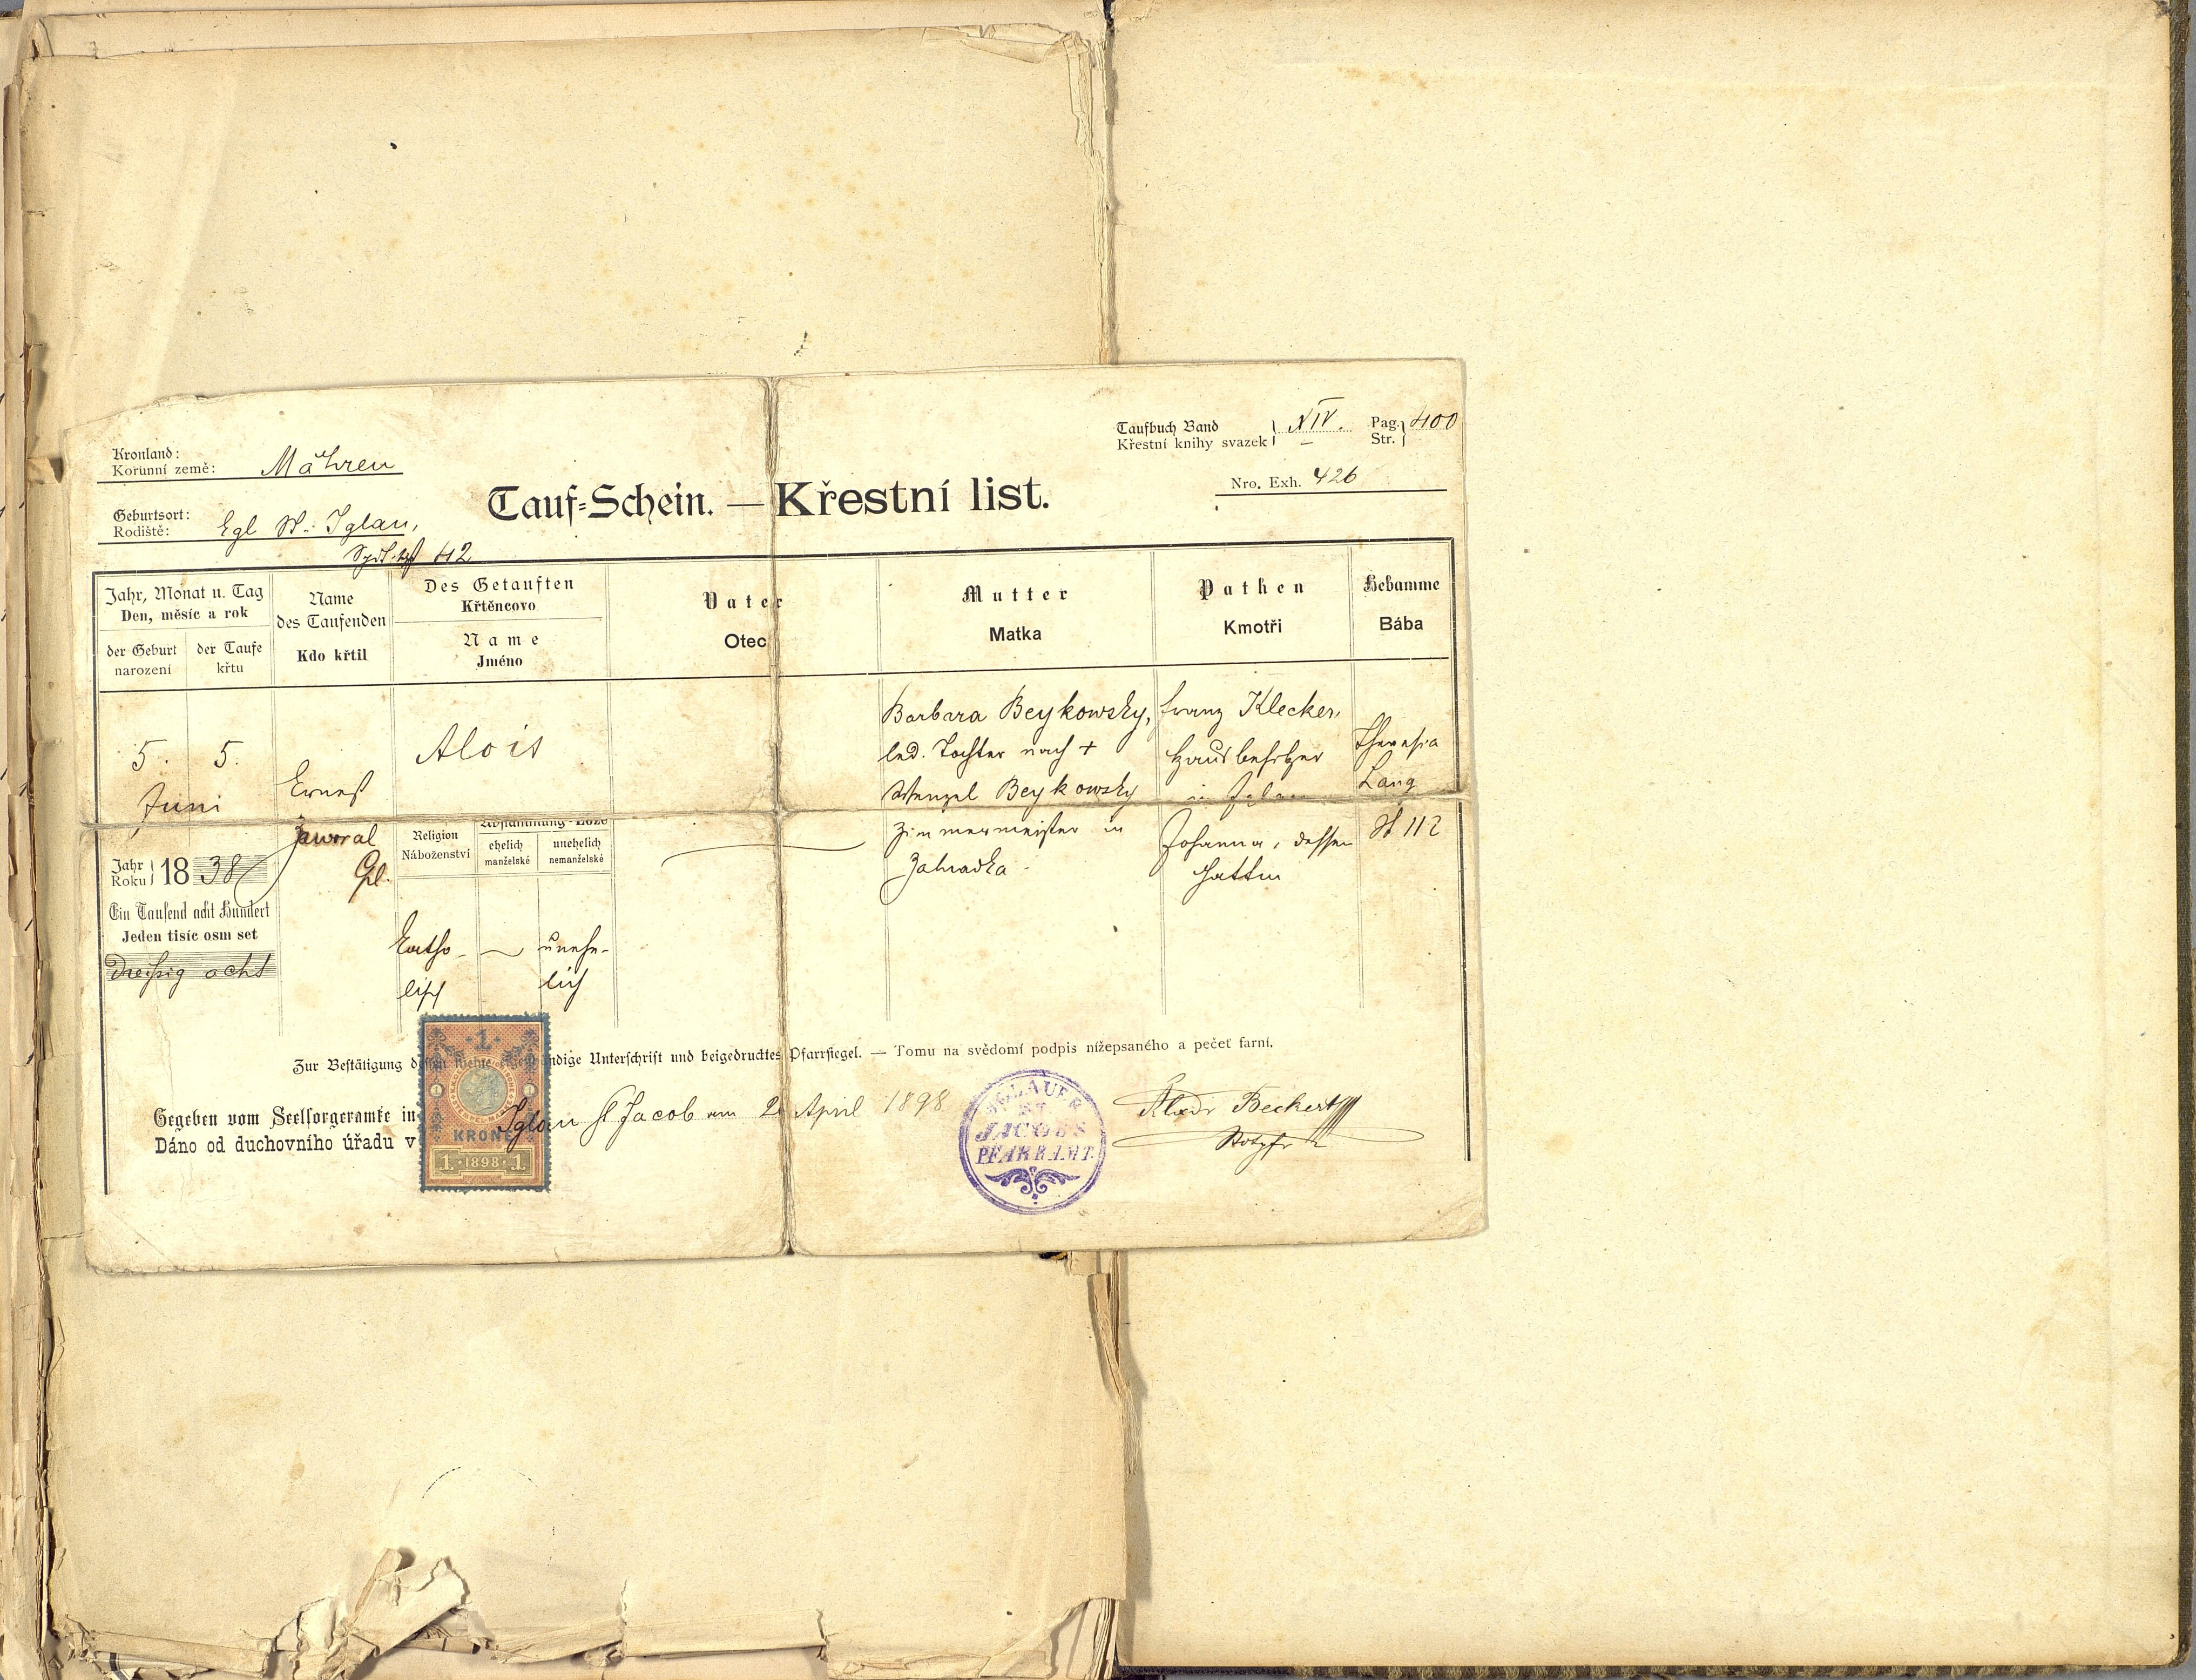 Taufbuch Band XIV. Pag. 400
Křestní knihy svazek Str.
Kronland:
Korunní země: Mähren
Nro. Exh. 426
Tauf=Schein. — Křestní list.
Geburtsort:
Rodiště: Iglau,
Jahr, Monat u. Tag
Den, měsíc a rok
der Geburt
narození
der Taufe
křtu
Name
des Taufenden
Kdo křtil
Des Getauften
Křtěncovo
Name
Jméno
Vater
Otec
Mutter
Matka
Pathen
Kmotři
Hebamme
Bába
5. 5.
Juni
Jahr
Roku 18 38
Ein Tausend acht Hundert
Jeden tisíc osm set
dreißig acht
Ernest
Jaworal
Alois
Religion
Náboženství
ehelich
manželské
unehelich
nemanželské
katho-
lisch
unehe-
lich
Barbara Beykowsky,
led. Tochter nach +
Wenzel Beykowsky
Zimmermeister in
Zahradka
Franz Klecker,
Hausbesitzer
in Iglau
Johanna, dessen
Gattin
Theresia
Lang
112
Zur Bestätigung dessen meine eigenhändige Unterschrift und beigedrucktes Pfarrsiegel. — Tomu na svědomí podpis nížepsaného a pečeť farní.
Gegeben vom Seelsorgeramte in
Dáno od duchovního úřadu v
Iglau St Jacob am 2 April 1898
1
KRONE
1. 1898 1.
IGLAUER
ST.
JACOBS
PFARRAMT.
Beckert